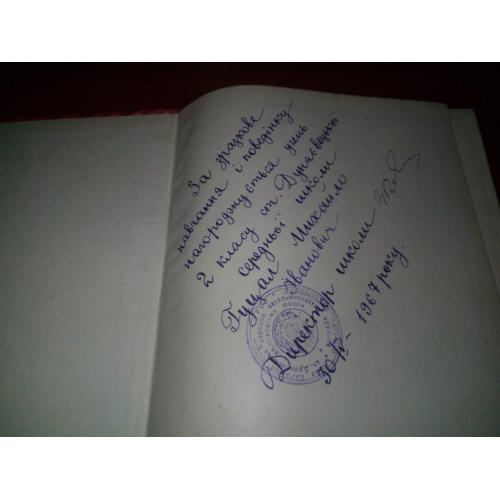 За зразкове
навчання і поведінку
нагороджується учень
2 класу ст. Дунаєвецької
середньої школи
Гуцал Михайло
Іванович
Директор школи
30-V- 1967 року.